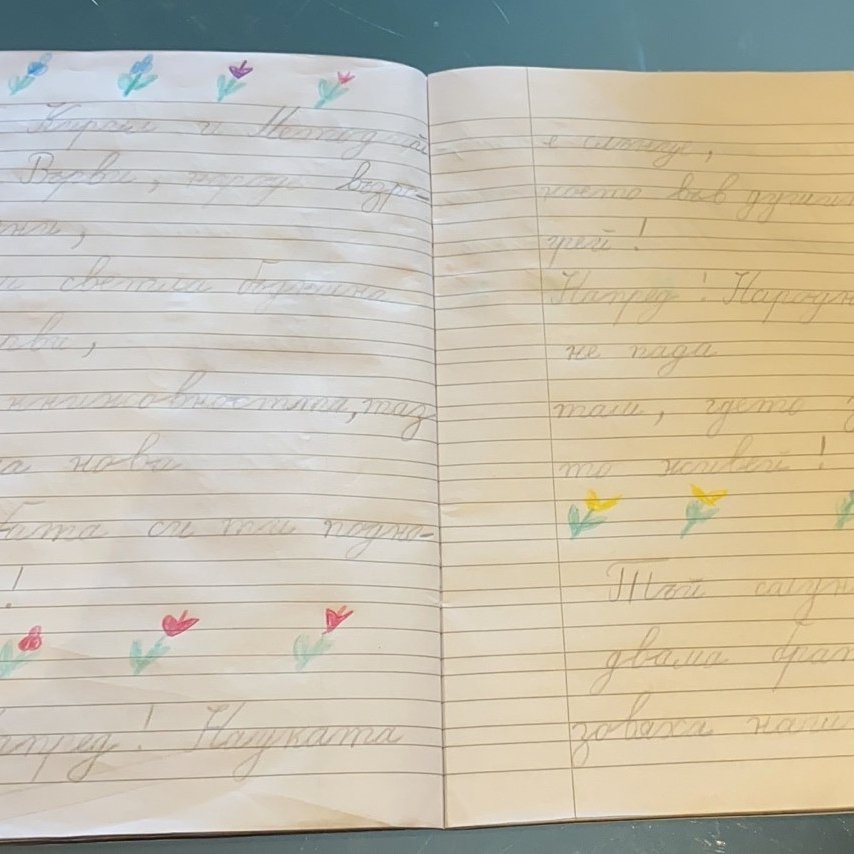 Кирил и Методий
Върви, народе възро-
ени,
светла бъднина
ърви,
книжовността, таз
а нова
бата си ти подно-
!
апред! Науката
е слънце,
което във души
грей!
Напред! Народн
не пада
там, гдето
то живей!
Тъй солун
двама брат
зоваха наши